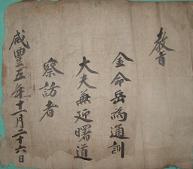 教旨
金命岳為通訓
大夫兼迎曙道
察訪者
咸豊五年十二月二十六日